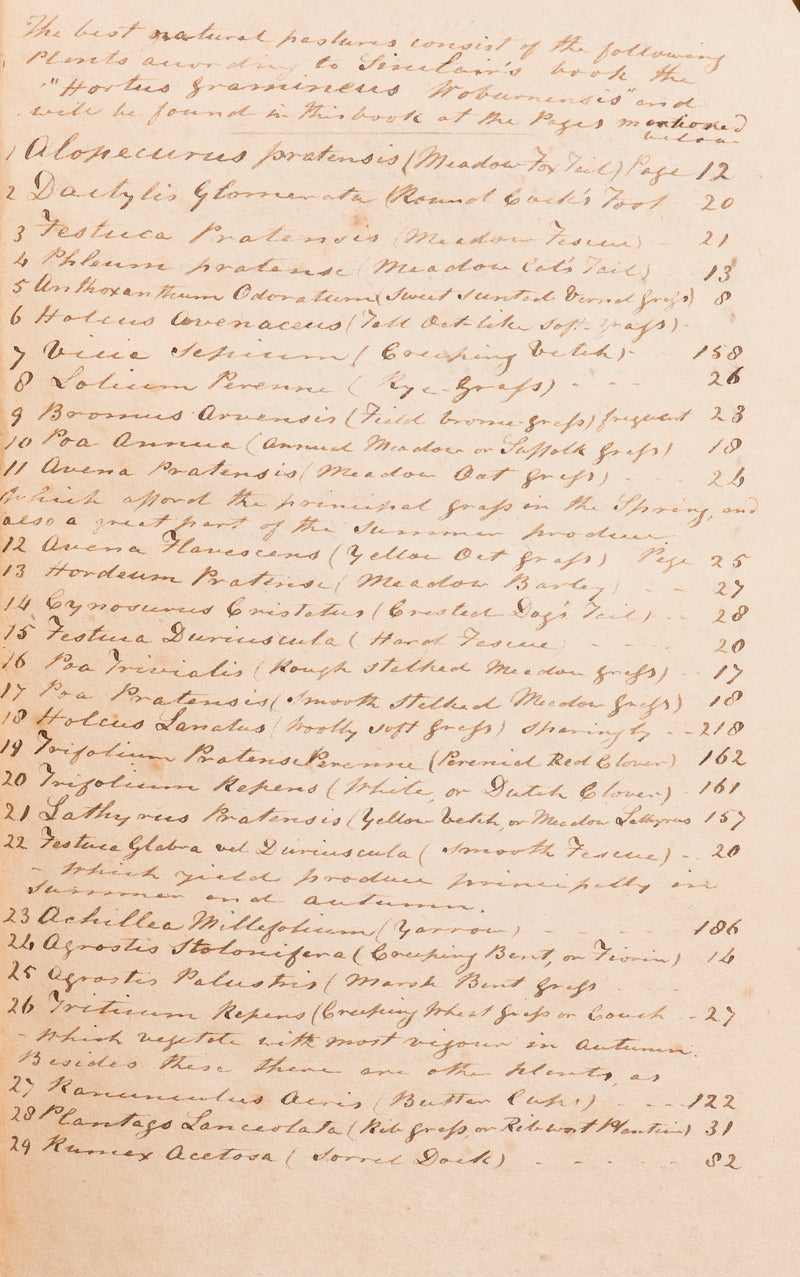 The best natural pastures consist of the following
Plants according to Sinclair's book the
"Hortus gramineus Woburnensis" and
will be found in this book at the Pages mentioned
below
1 Alopecurus pratensis (Meadow Fox Tail) Page 12
2 Dactylis Glomerata (Round Cock's Foot 20
3 Festuca Pratensis (Meadow Fescue) - 21
4 Phleum pratense (Meadow Cat's Tail) 13
5 Anthoxanthum Odoratum (Sweet Scented Vernal Grass) 8
6 Holcus Avenaceus (Tall Oat-like Soft-grass) -
7 Vicia Sepium (Creeping Vetch) - - 158
8 Lolium Perenne (Rye-Grass) - - - 26
9 Bromus Arvensis (Field brome-grass) frequent 23
10 Poa Annua (Annual Meadow or Suffolk Grass) 18
11 Avena Pratensis (Meadow Oat Grass) - - - 24
Which afford the principal grass in the Spring, and
also a great part of the summer produce.
12 Avena Flavescens (Yellow Oat Grass) Page 25
13 Hordeum Pratense (Meadow Barley) - - 27
14 Cynosurus Cristatus (Crested Dog's Tail) - - 28
15 Festuca Duriuscula (Hard Fescue) - - - - 20
16 Poa Trivialis (Rough Stalked Meadow Grass) - - 17
17 Poa Pratensis (Smooth Stalked Meadow Grass) 18
18 Holcus Lanatus (Woolly Soft Grass) sparingly - - 218
19 Trifolium Pratense Perenne (Perenial Red Clover) 162
20 Trifolium Repens (White, or Dutch Clover) - 161
21 Lathyrus Pratensis (Yellow Vetch, or Meadow Lathyrus 157
22 Festuca Glabra vel Duriuscula (Smooth Fescue) - - 20
- Which yield produce principally in
Summer and autumn.
23 Achillea Millefolium (Yarrow) - - - - - 186
24 Agrostis Stolonifera (Creeping Bent, or Fiorin) 14
25 Agrostis Palustris (Marsh Bent Grass - - -
26 Triticum Repens (Creeping Wheat Grass or Couch - 27
- Which vegetate with most vigour in Autumn.
Besides these there are other plants, as
27 Ranunculus Acris (Butter Cups) - - - - 122
28 Plantago Lanceolata (Rib Grass, or Ribwort Plantain) 31
29 Rumex Acetosa (Sorrel Dock) - - - - - 82